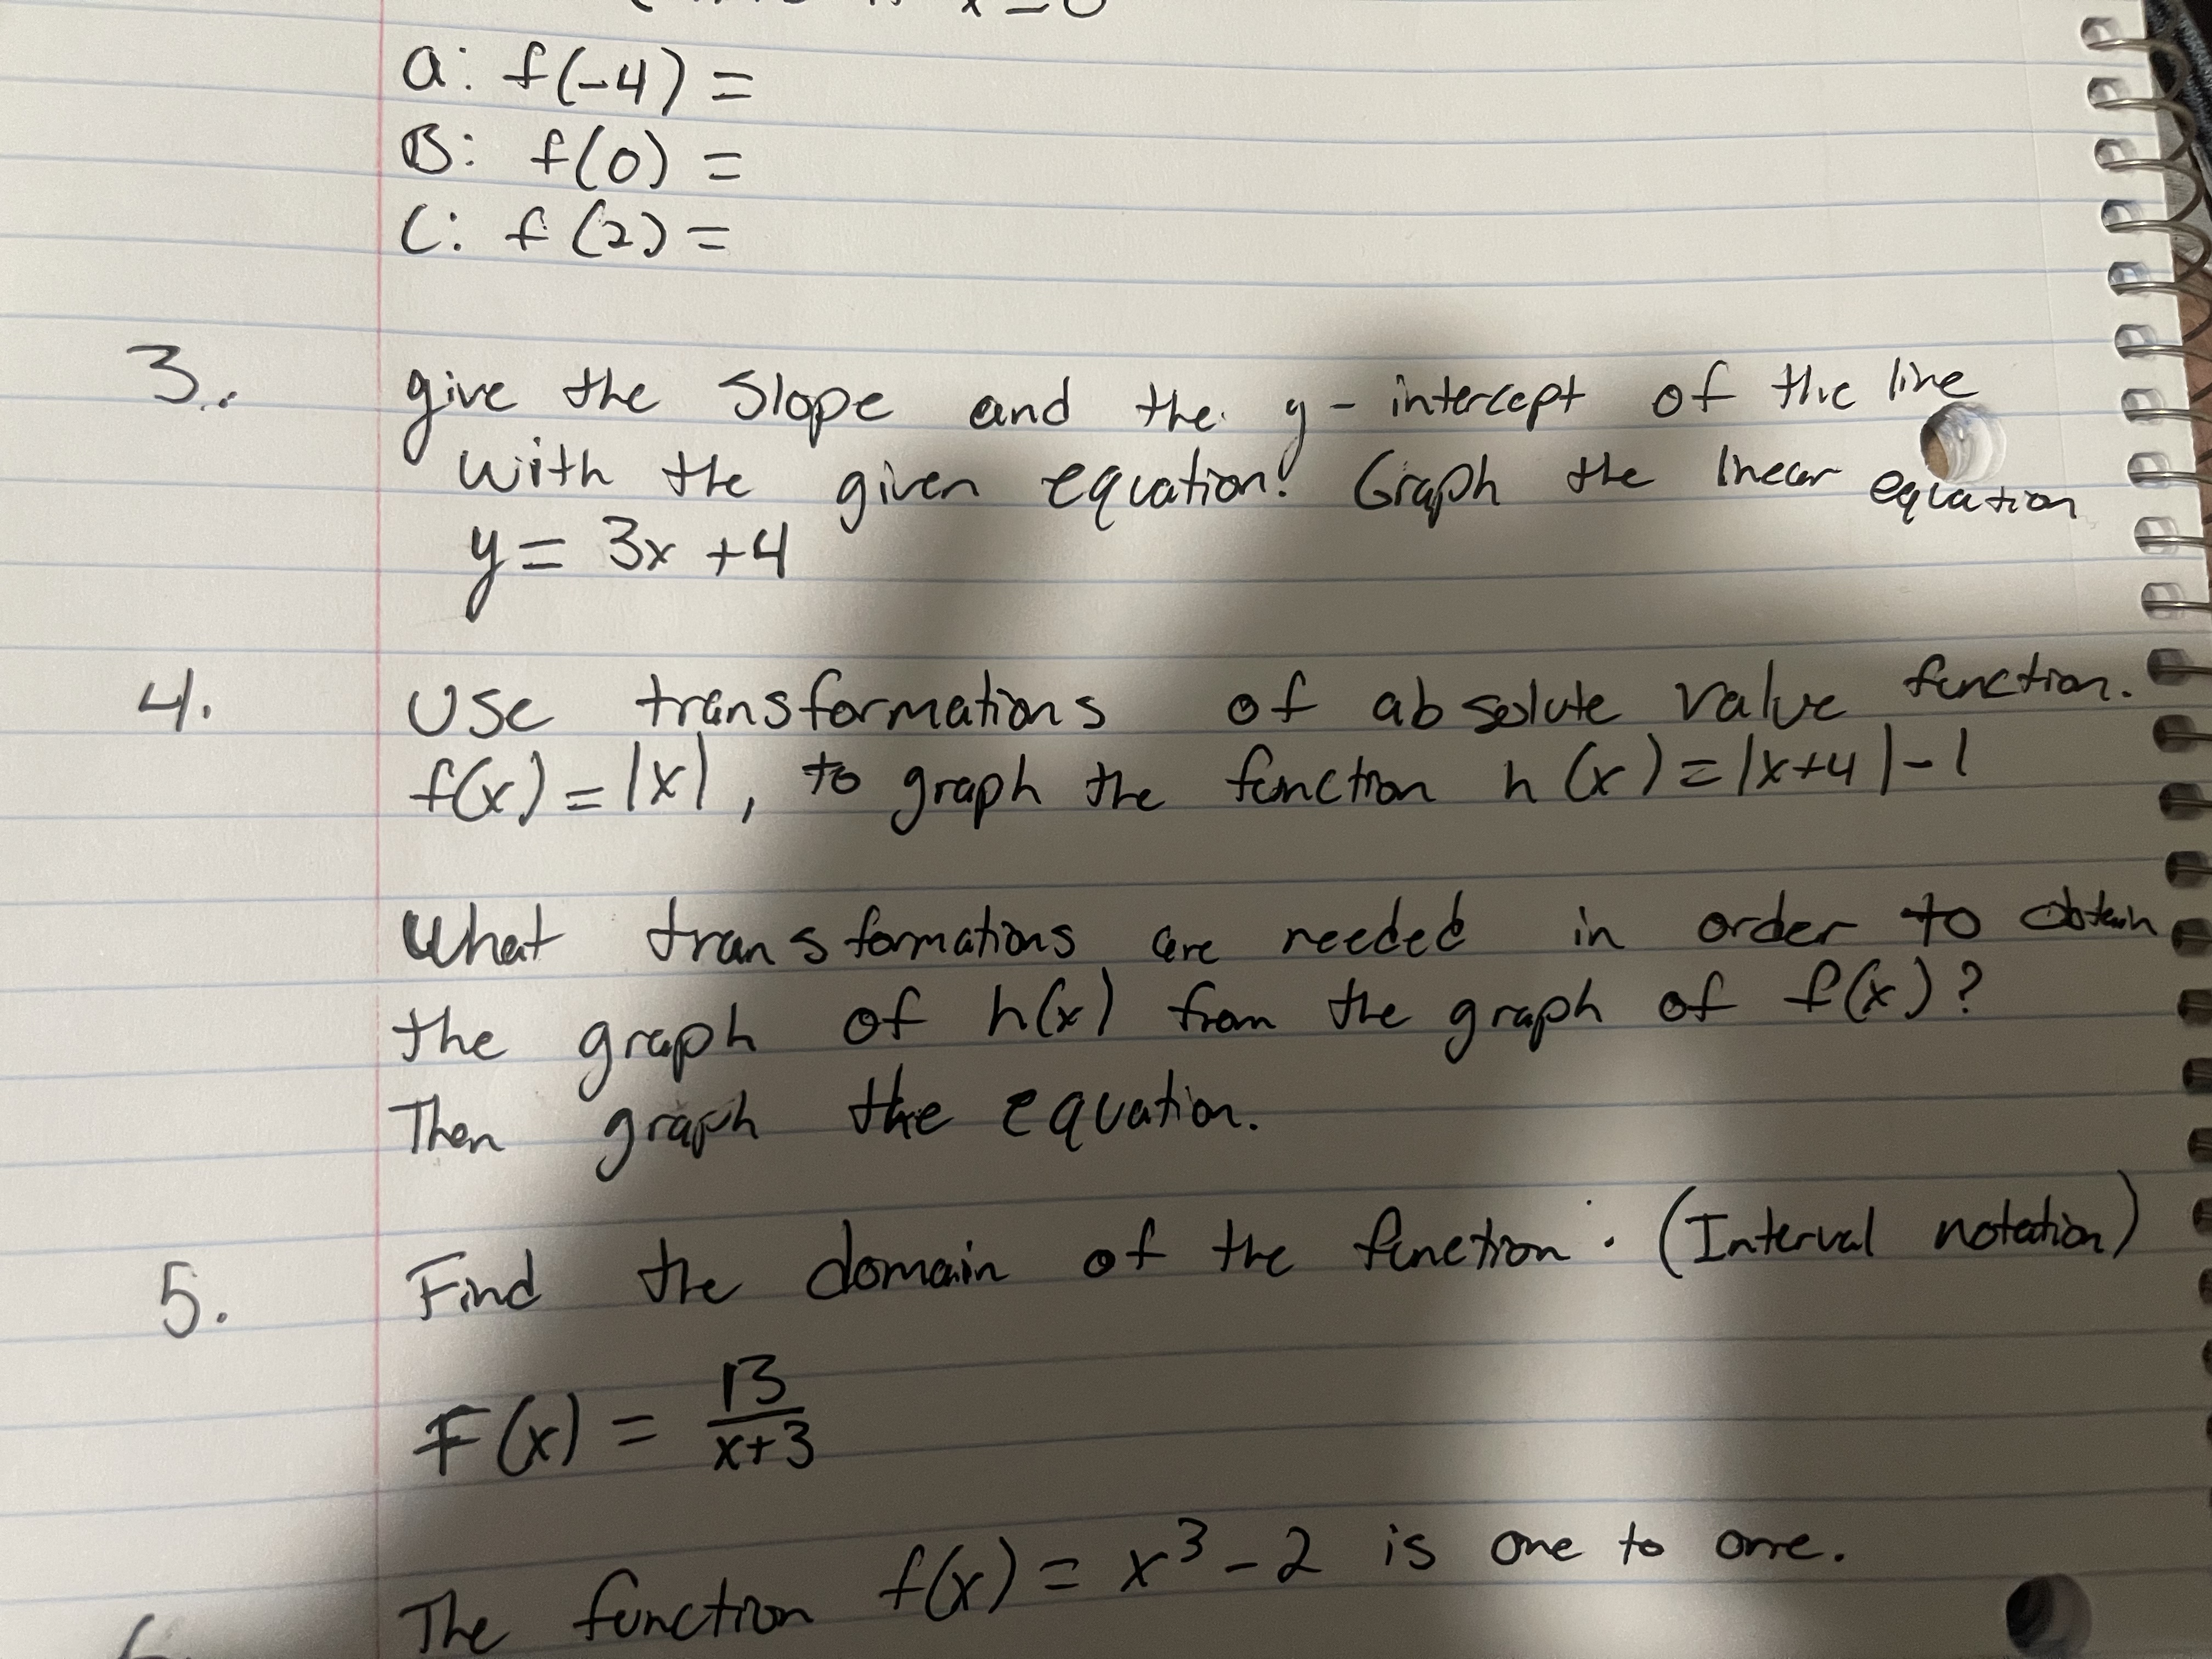 x≥0
a: f(-4) =
B: f(0) =
C: f(2) =
3. give the slope and the y-intercept of the line
with the given equation. Graph the linear equation
y = 3x +4
4. Use transformations of absolute value function.
f(x) = |x|, to graph the function h(x) = |x+4|-1
What transformations are needed in order to obtain
the graph of h(x) from the graph of f(x)?
Then graph the equation.
5. Find the domain of the function. (Interval notation)
F(x) = 13/(x+3)
6. The function f(x) = x³-2 is one to one.